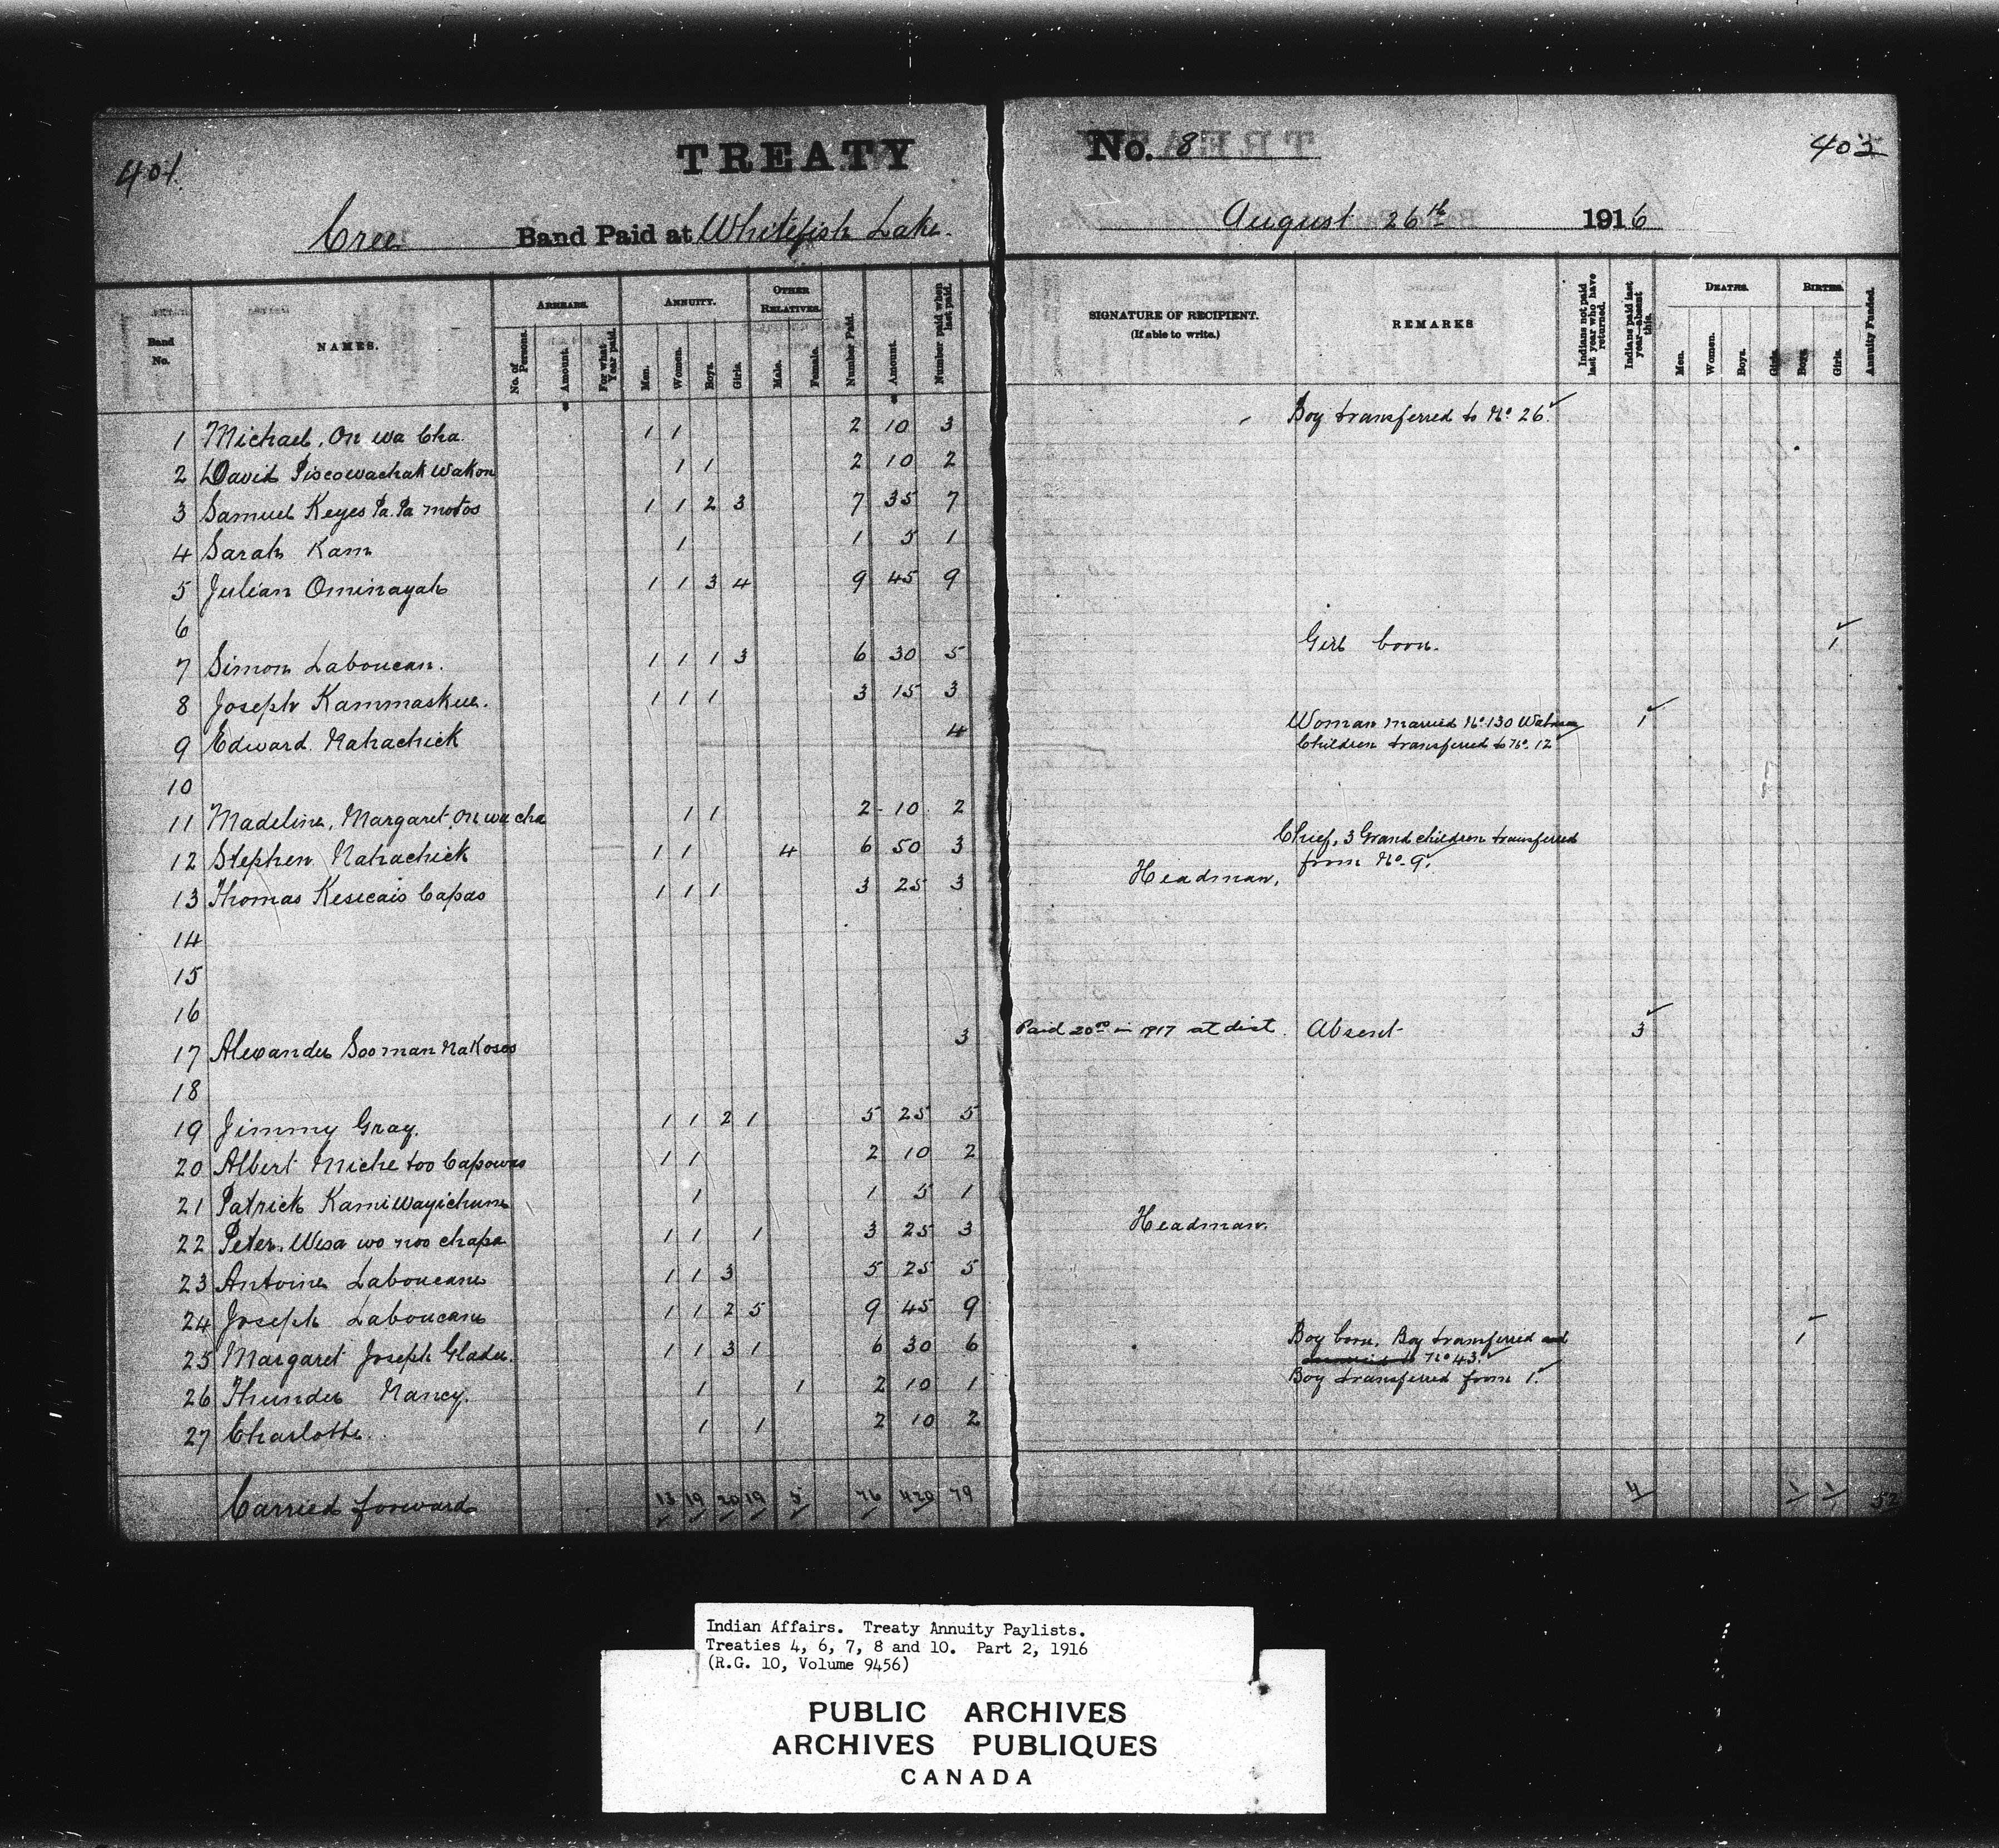 401. TREATY No. 8 403
Cree Band Paid at Whitefish Lake. August 26th 1916
Band No. NAMES. ARREARS. No. of Persons. Amount. For what Year paid. ANNUITY. Men. Women. Boys. Girls. OTHER RELATIVES. Male. Female. Number Paid. Amount. Number paid when last paid. SIGNATURE OF RECIPIENT. (If able to write.) REMARKS Indians not paid last year who have returned. Indians paid last year—absent this. DEATHS. Men. Women. Boys. Girls. BIRTHS. Boys. Girls. Annuity Funded.
1 Michael. On wa Cha. 1 1 2 10 3 Boy transferred to No. 26.
2 David Piscowachak Wakon 1 1 2 10 2
3 Samuel Keyes Pa. Pa motos 1 1 2 3 7 35 7
4 Sarah Kam 1 1 5 1
5 Julian Ominayah 1 1 3 4 9 45 9
6
7 Simon Laboucan. 1 1 1 3 6 30 5 Girl born. 1
8 Joseph Kammaskue. 1 1 1 3 15 3
9 Edward. Nahachick 4 Woman married No. 130 1
Children transferred to No. 12
10
11 Madeline, Margaret. On wa cha 1 1 2 10 2
12 Stephen Nahachick 1 1 4 6 50 3 Chief, 3 Grand children transferred
from No. 9.
13 Thomas Kesicais Capas 1 1 1 3 25 3 Headman.
14
15
16
17 Alexander Sooman Nakosos 3 Paid 20.00 in 1917 at dist. Absent 3
18
19 Jimmy Gray. 1 1 2 1 5 25 5
20 Albert Miche too Capowis 1 1 2 10 2
21 Patrick Kamiwayichum 1 1 5 1
22 Peter. Wesa wo noo chapa 1 1 1 3 25 3 Headman.
23 Antoine Laboucane 1 1 3 5 25 5
24 Joseph Laboucane 1 1 2 5 9 45 9
25 Margaret Joseph Gladu. 1 1 3 1 6 30 6 Boy born. Boy transferred and 1
No 43.
26 Thunder Nancy. 1 1 2 10 1 Boy transferred from 1.
27 Charlotte. 1 1 2 10 2
Carried forward 13 19 20 19 5 76 420 79 4 1 1 52
Indian Affairs. Treaty Annuity Paylists.
Treaties 4, 6, 7, 8 and 10. Part 2, 1916
(R.G. 10, Volume 9456)
PUBLIC ARCHIVES
ARCHIVES PUBLIQUES
CANADA